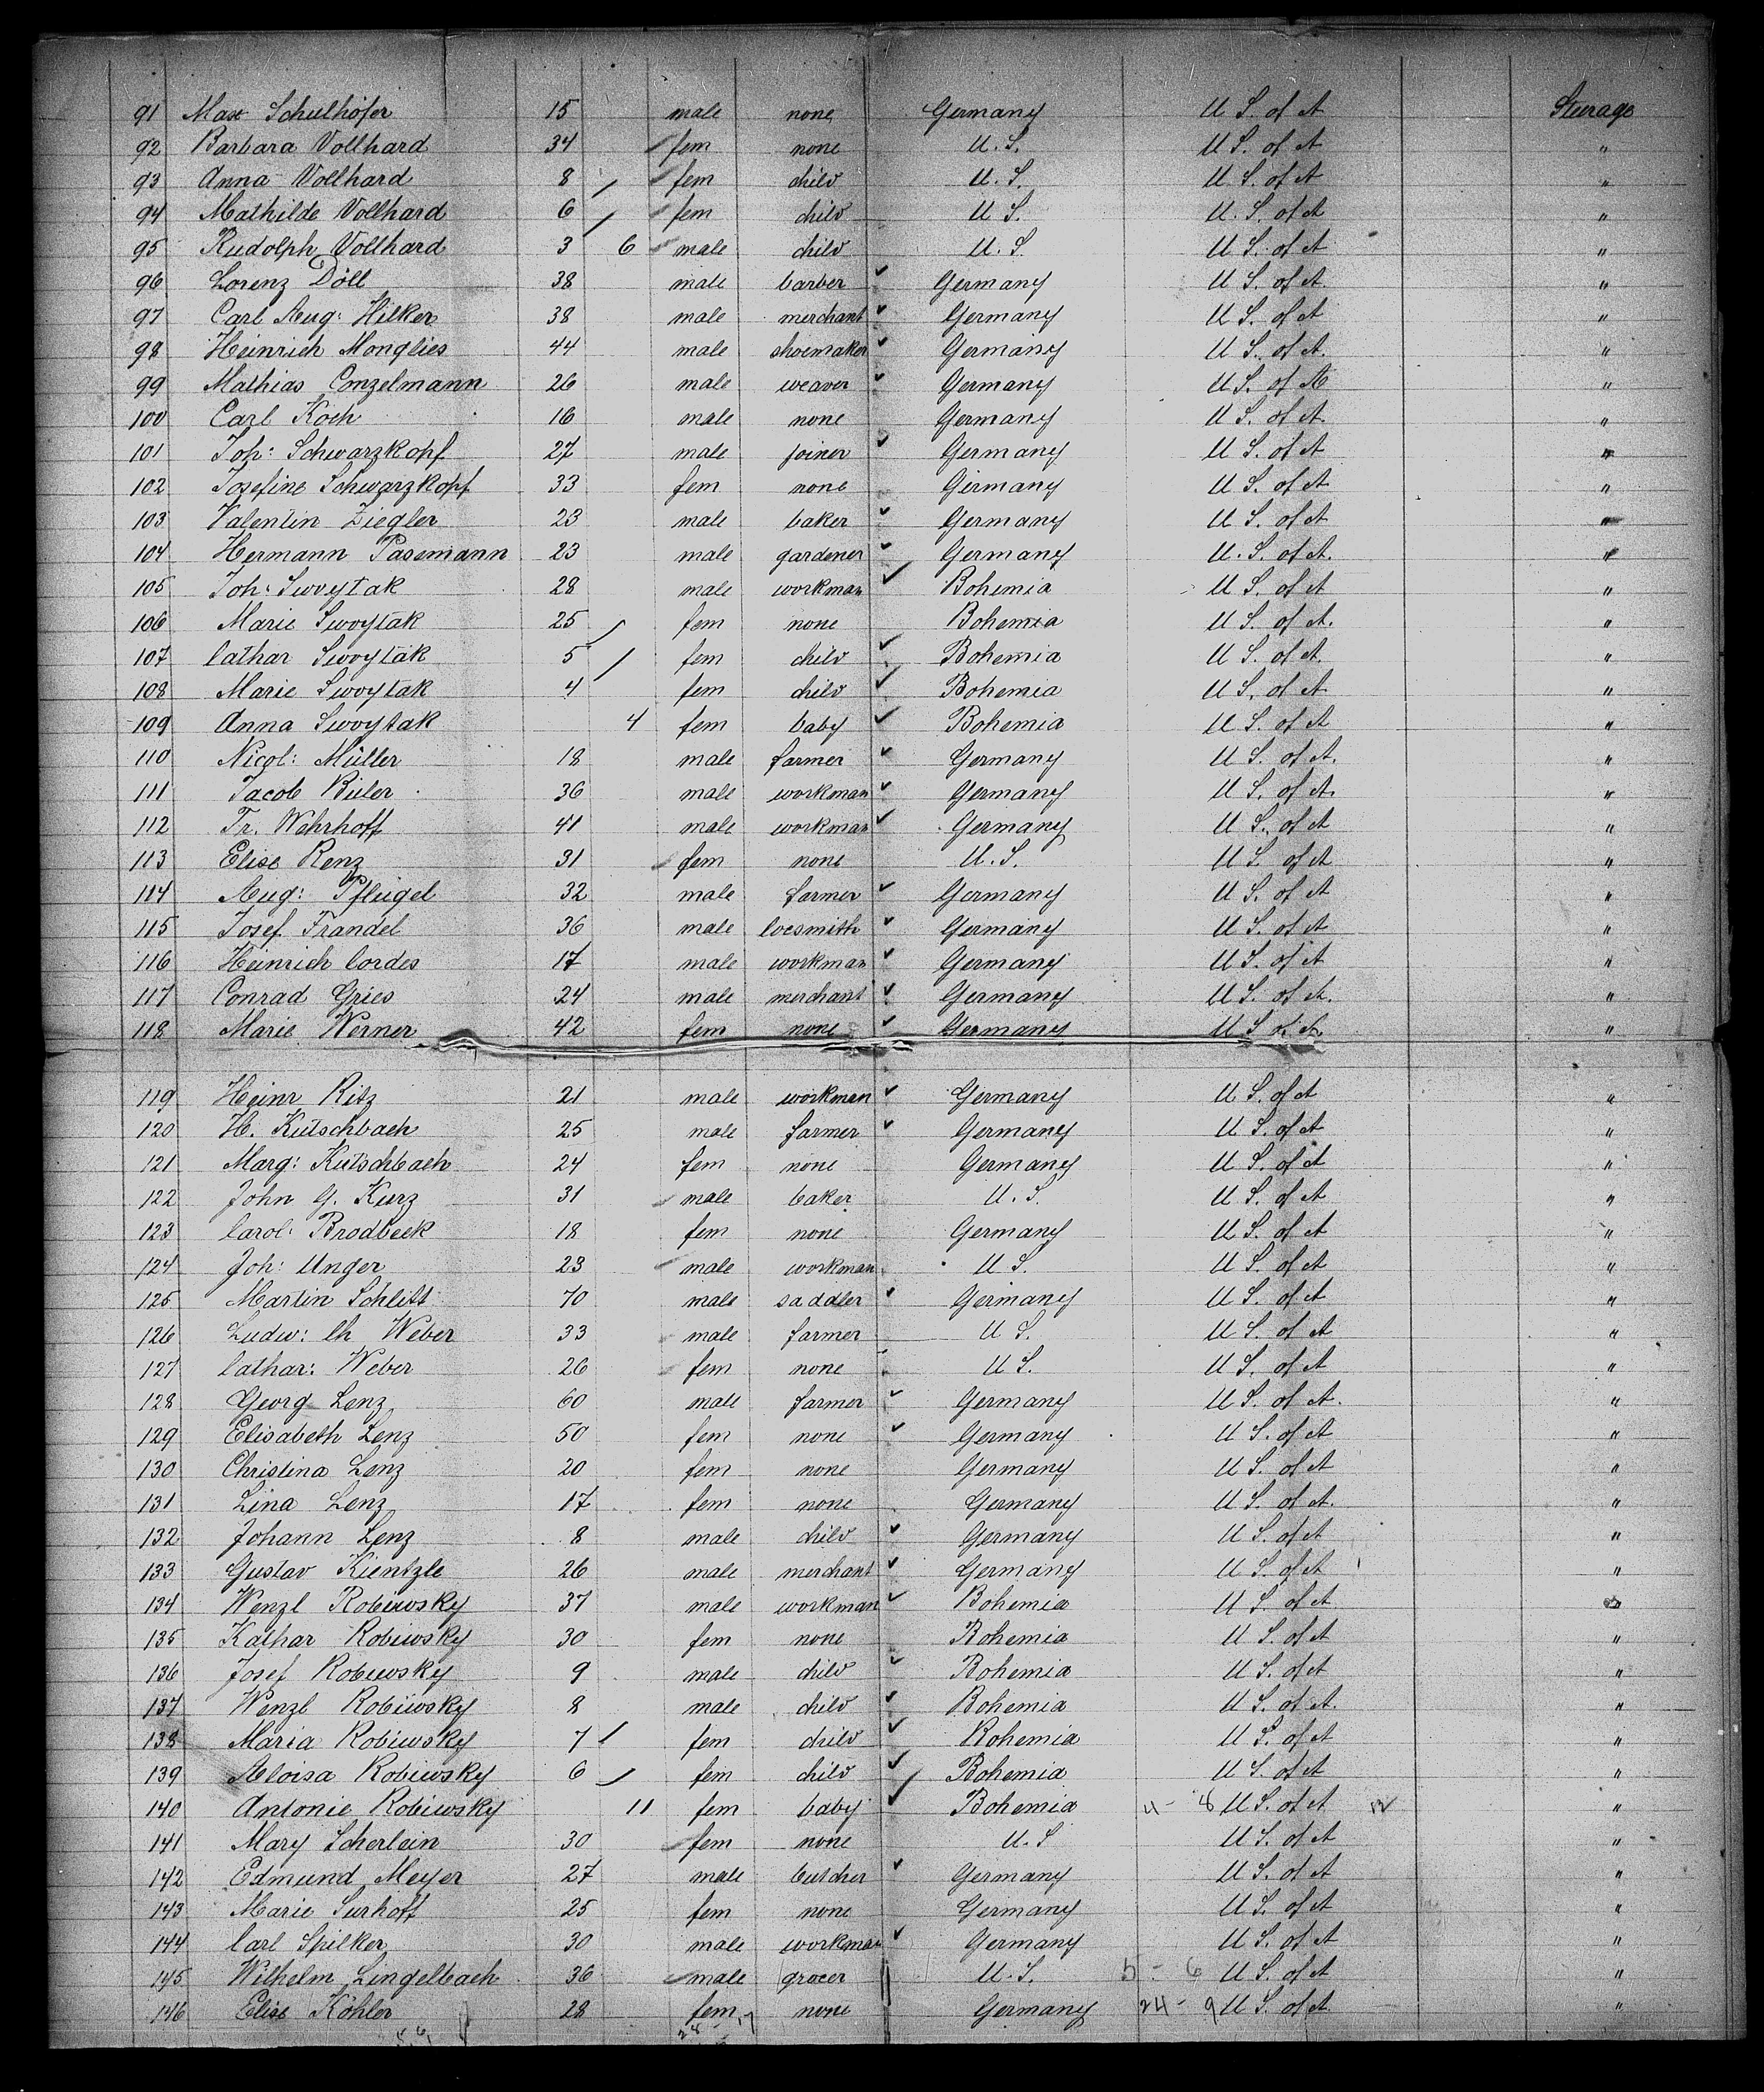 91 Max Schulhöfer 15 male none Germany U S. of A Steerage
92 Barbara Vollhard 34 fem none U. S. U S. of A "
93 Anna Vollhard 8 fem child U. S. U S. of A "
94 Mathilde Vollhard 6 fem child U S. U. S. of A "
95 Rudolph Vollhard 3 6 male child U. S U S. of A "
96 Lorenz Döll 38 male barber Germany U S. of A "
97 Carl Aug: Hilker 38 male merchant Germany U S. of A "
98 Heinrich Monglies 44 male shoemaker Germany U S. of A. "
99 Mathias Conzelmann 26 male weaver Germany U S. of A "
100 Carl Koch 16 male none Germany U S. of A "
101 Joh: Schwarzkopf 27 male joiner Germany U S. of A "
102 Josefine Schwarzkopf 33 fem none Germany U S. of A "
103 Valentin Ziegler 23 male baker Germany U S. of A "
104 Hermann Pasemann 23 male gardener Germany U. S. of A. "
105 Joh: Swoytak 28 male workman Bohemia U S. of A "
106 Marie Swoytak 25 fem none Bohemia U S. of A. "
107 Cathar Swoytak 5 fem child Bohemia U S. of A. "
108 Marie Swoytak 4 fem child Bohemia U S. of A "
109 Anna Swoytak 4 fem baby Bohemia U S. of A "
110 Nicol: Müller 18 male farmer Germany U S. of A. "
111 Jacob Büler 36 male workman Germany U S. of A. "
112 Fr. Wehrhoff 41 male workman Germany U S. of A "
113 Elise Renz 31 fem none U. S. U S. of A "
114 Aug: Pfleigel 32 male farmer Germany U S. of A "
115 Josef Frandel 36 male locsmith Germany U S. of A "
116 Heinrich Cordes 17 male workman Germany U S. of A "
117 Conrad Gries 24 male merchant Germany U S. of A. "
118 Marie Werner 42 fem none Germany U S of A. "
119 Heinr Ritz 21 male workman Germany U S. of A "
120 H. Kutschbach 25 male farmer Germany U S. of A "
121 Marg: Kutschbach 24 fem none Germany U S. of A "
122 John G. Kurz 31 male baker U. S. U S. of A "
123 Carol: Brodbeck 18 fem none Germany U S. of A "
124 Joh: Unger 23 male workman U S. U S. of A "
125 Martin Schlitt 70 male saddler Germany U S. of A "
126 Ludw: Ch Weber 33 male farmer U S. U S. of A "
127 Cathar: Weber 26 fem none U S. U S. of A "
128 Georg Lenz 60 male farmer Germany U S. of A. "
129 Elisabeth Lenz 50 fem none Germany U S. of A "
130 Christina Lenz 20 fem none Germany U S. of A "
131 Lina Lenz 17 fem none Germany U S. of A. "
132 Johann Lenz 8 male child Germany U S. of A "
133 Gustav Kientzle 26 male merchant Germany U S. of A "
134 Wenzl Robiwsky 37 male workman Bohemia U S. of A "
135 Kathar Robiwsky 30 fem none Bohemia U S. of A "
136 Josef Robiwsky 9 male child Bohemia U S. of A "
137 Wenzl Robiwsky 8 male child Bohemia U S. of A. "
138 Maria Robiwsky 7 fem child Bohemia U S. of A "
139 Aloisa Robiwsky 6 fem child Bohemia U S. of A "
140 Antonie Robiwsky 11 fem baby Bohemia 4 - 8 U S. of A "
141 Mary Scherlein 30 fem none U. S U S. of A "
142 Edmund Meyer 27 male butcher Germany U S. of A "
143 Marie Surhoff 25 fem none Germany U S. of A "
144 Carl Spilker 30 male workman Germany U S. of A "
145 Wilhelm Lingelbach 36 male grocer U. S. 5 - 6 U S. of A "
146 Elise Köhler 28 fem none Germany 24 - 9 U S. of A "